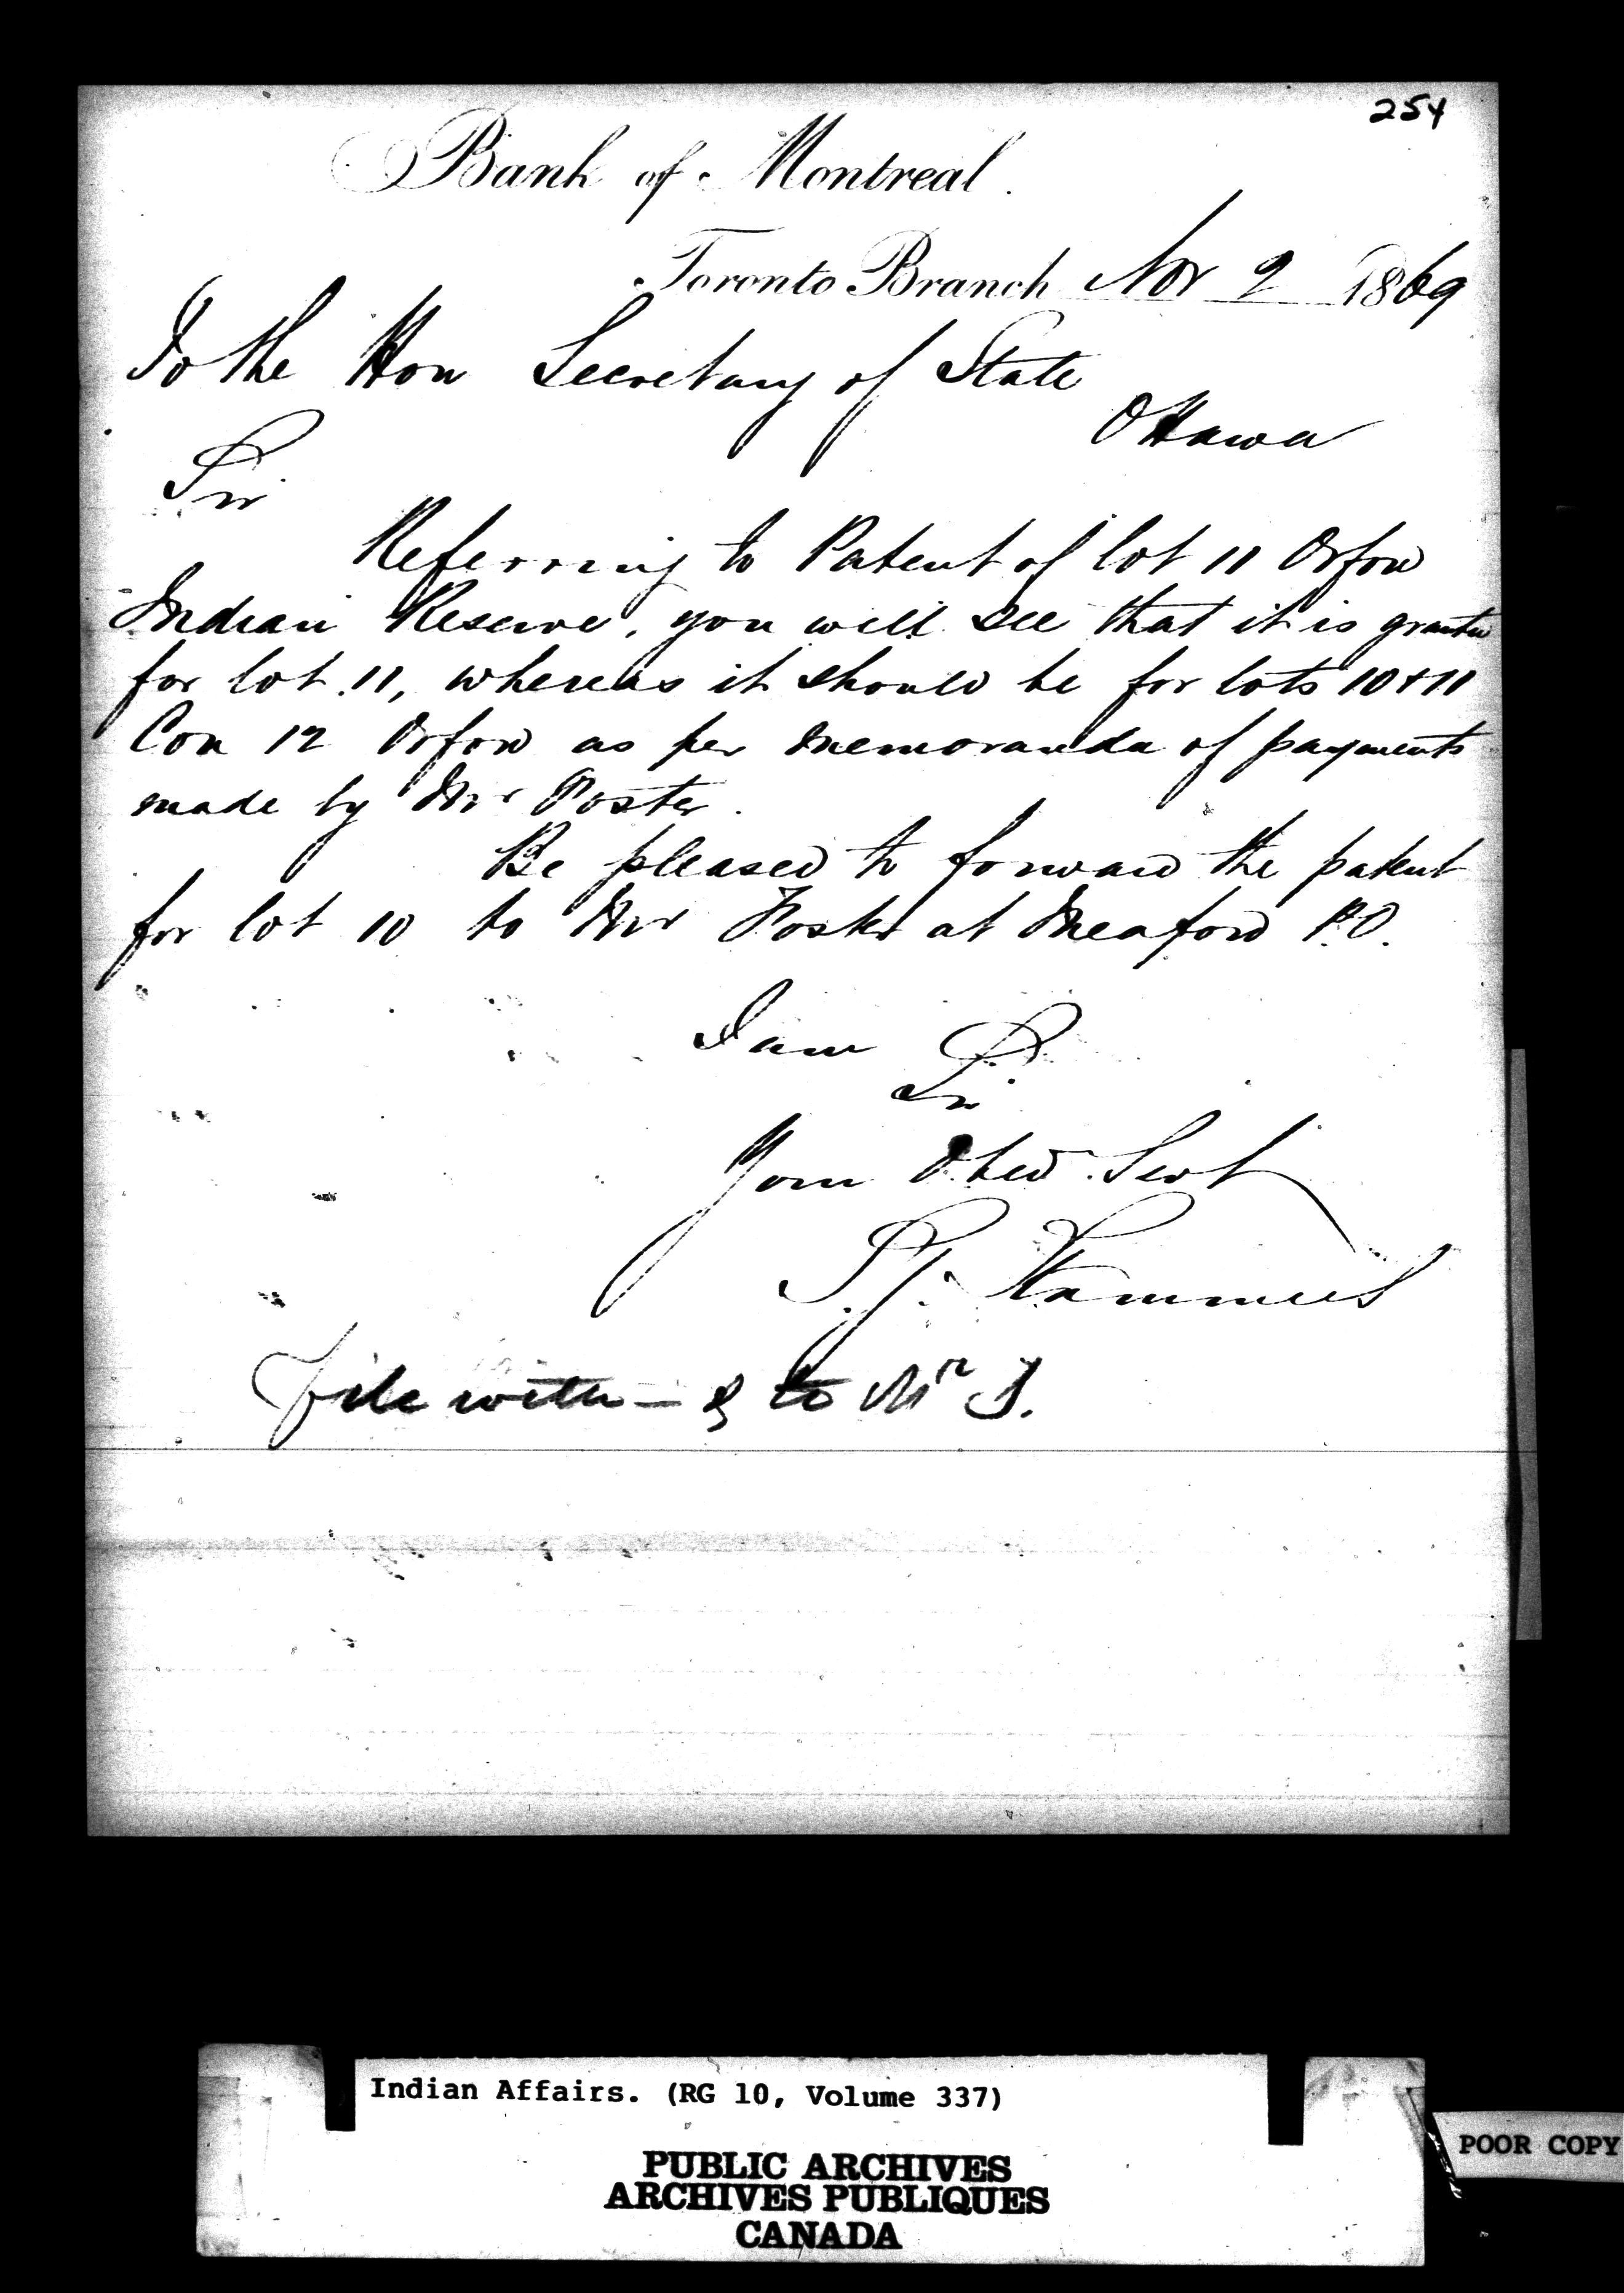 254
Bank of Montreal.
Toronto Branch Nov 2 1869
To the Hon Secretary of State
Ottawa
Sir
Referring to Patent of lot 11 Orford
Indian Reserve, you will see that it is granted
for lot 11, whereas it should be for lots 10 & 11
Con 12 Orford as per memoranda of payments
made by Mr Foster.
Be pleased to forward the patent
for lot 10 to Mr Foster at Meaford P.O.
I am
Sir
Your Obed. Servt
File with — & to Mr
Indian Affairs. (RG 10, Volume 337)
PUBLIC ARCHIVES
ARCHIVES PUBLIQUES
CANADA
POOR COPY